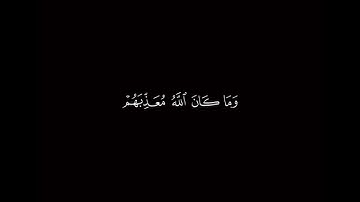 وَمَا كَانَ ٱللَّهُ مُعَذِّبَهُمْ